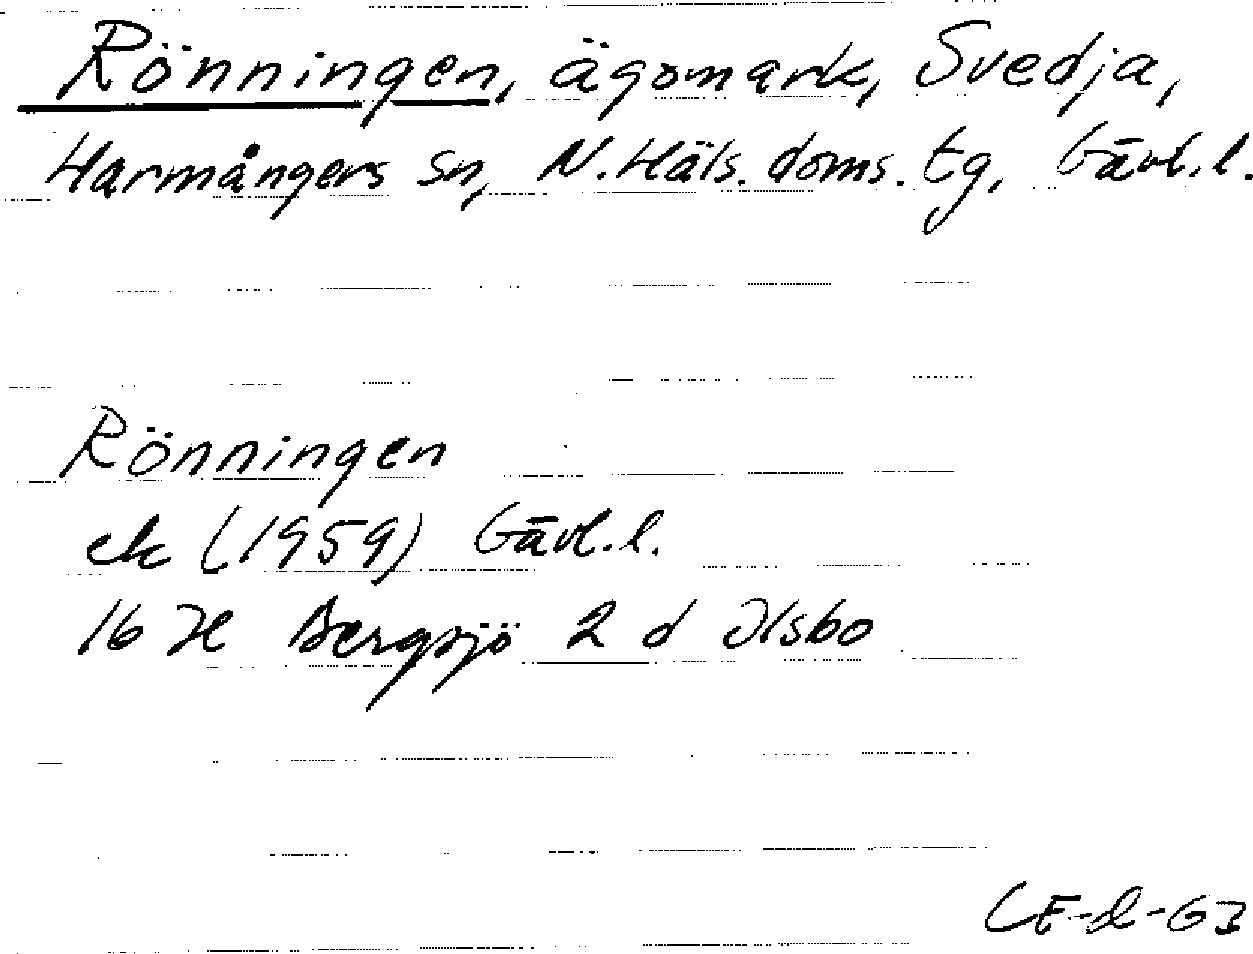 Rönningen, ägomark, Svedja,
Harmångers sn, N. Häls. doms. tg, Gävl. l.
Rönningen
ek (1959) Gävl. l.
16 H Bergsjö 2 d Ilsbo